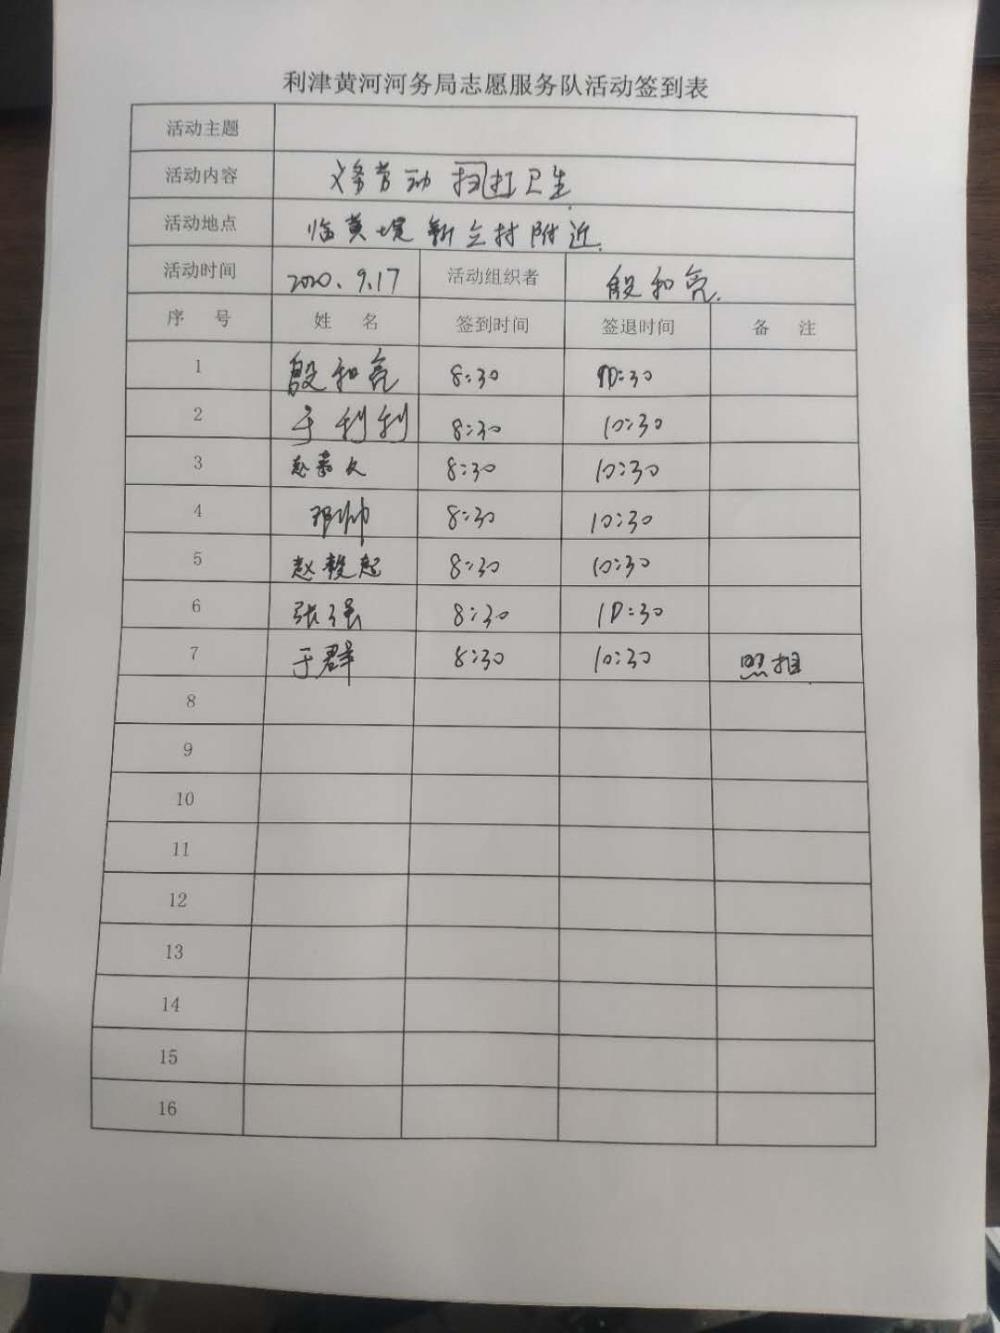 利津黄河河务局志愿服务队活动签到表
活动主题
活动内容 义务劳动 扫打卫生
活动地点 临黄堤新立村附近.
活动时间 2020.9.17 活动组织者 殷和亮.
序 号 姓 名 签到时间 签退时间 备 注
1 殷和亮 8:30 10:30
2 于利利 8:30 10:30
3 8:30 10:30
4 邓帅 8:30 10:30
5 赵毅起 8:30 10:30
6 张强 8:30 10:30
7 于群 8:30 10:30 照相
8
9
10
11
12
13
14
15
16